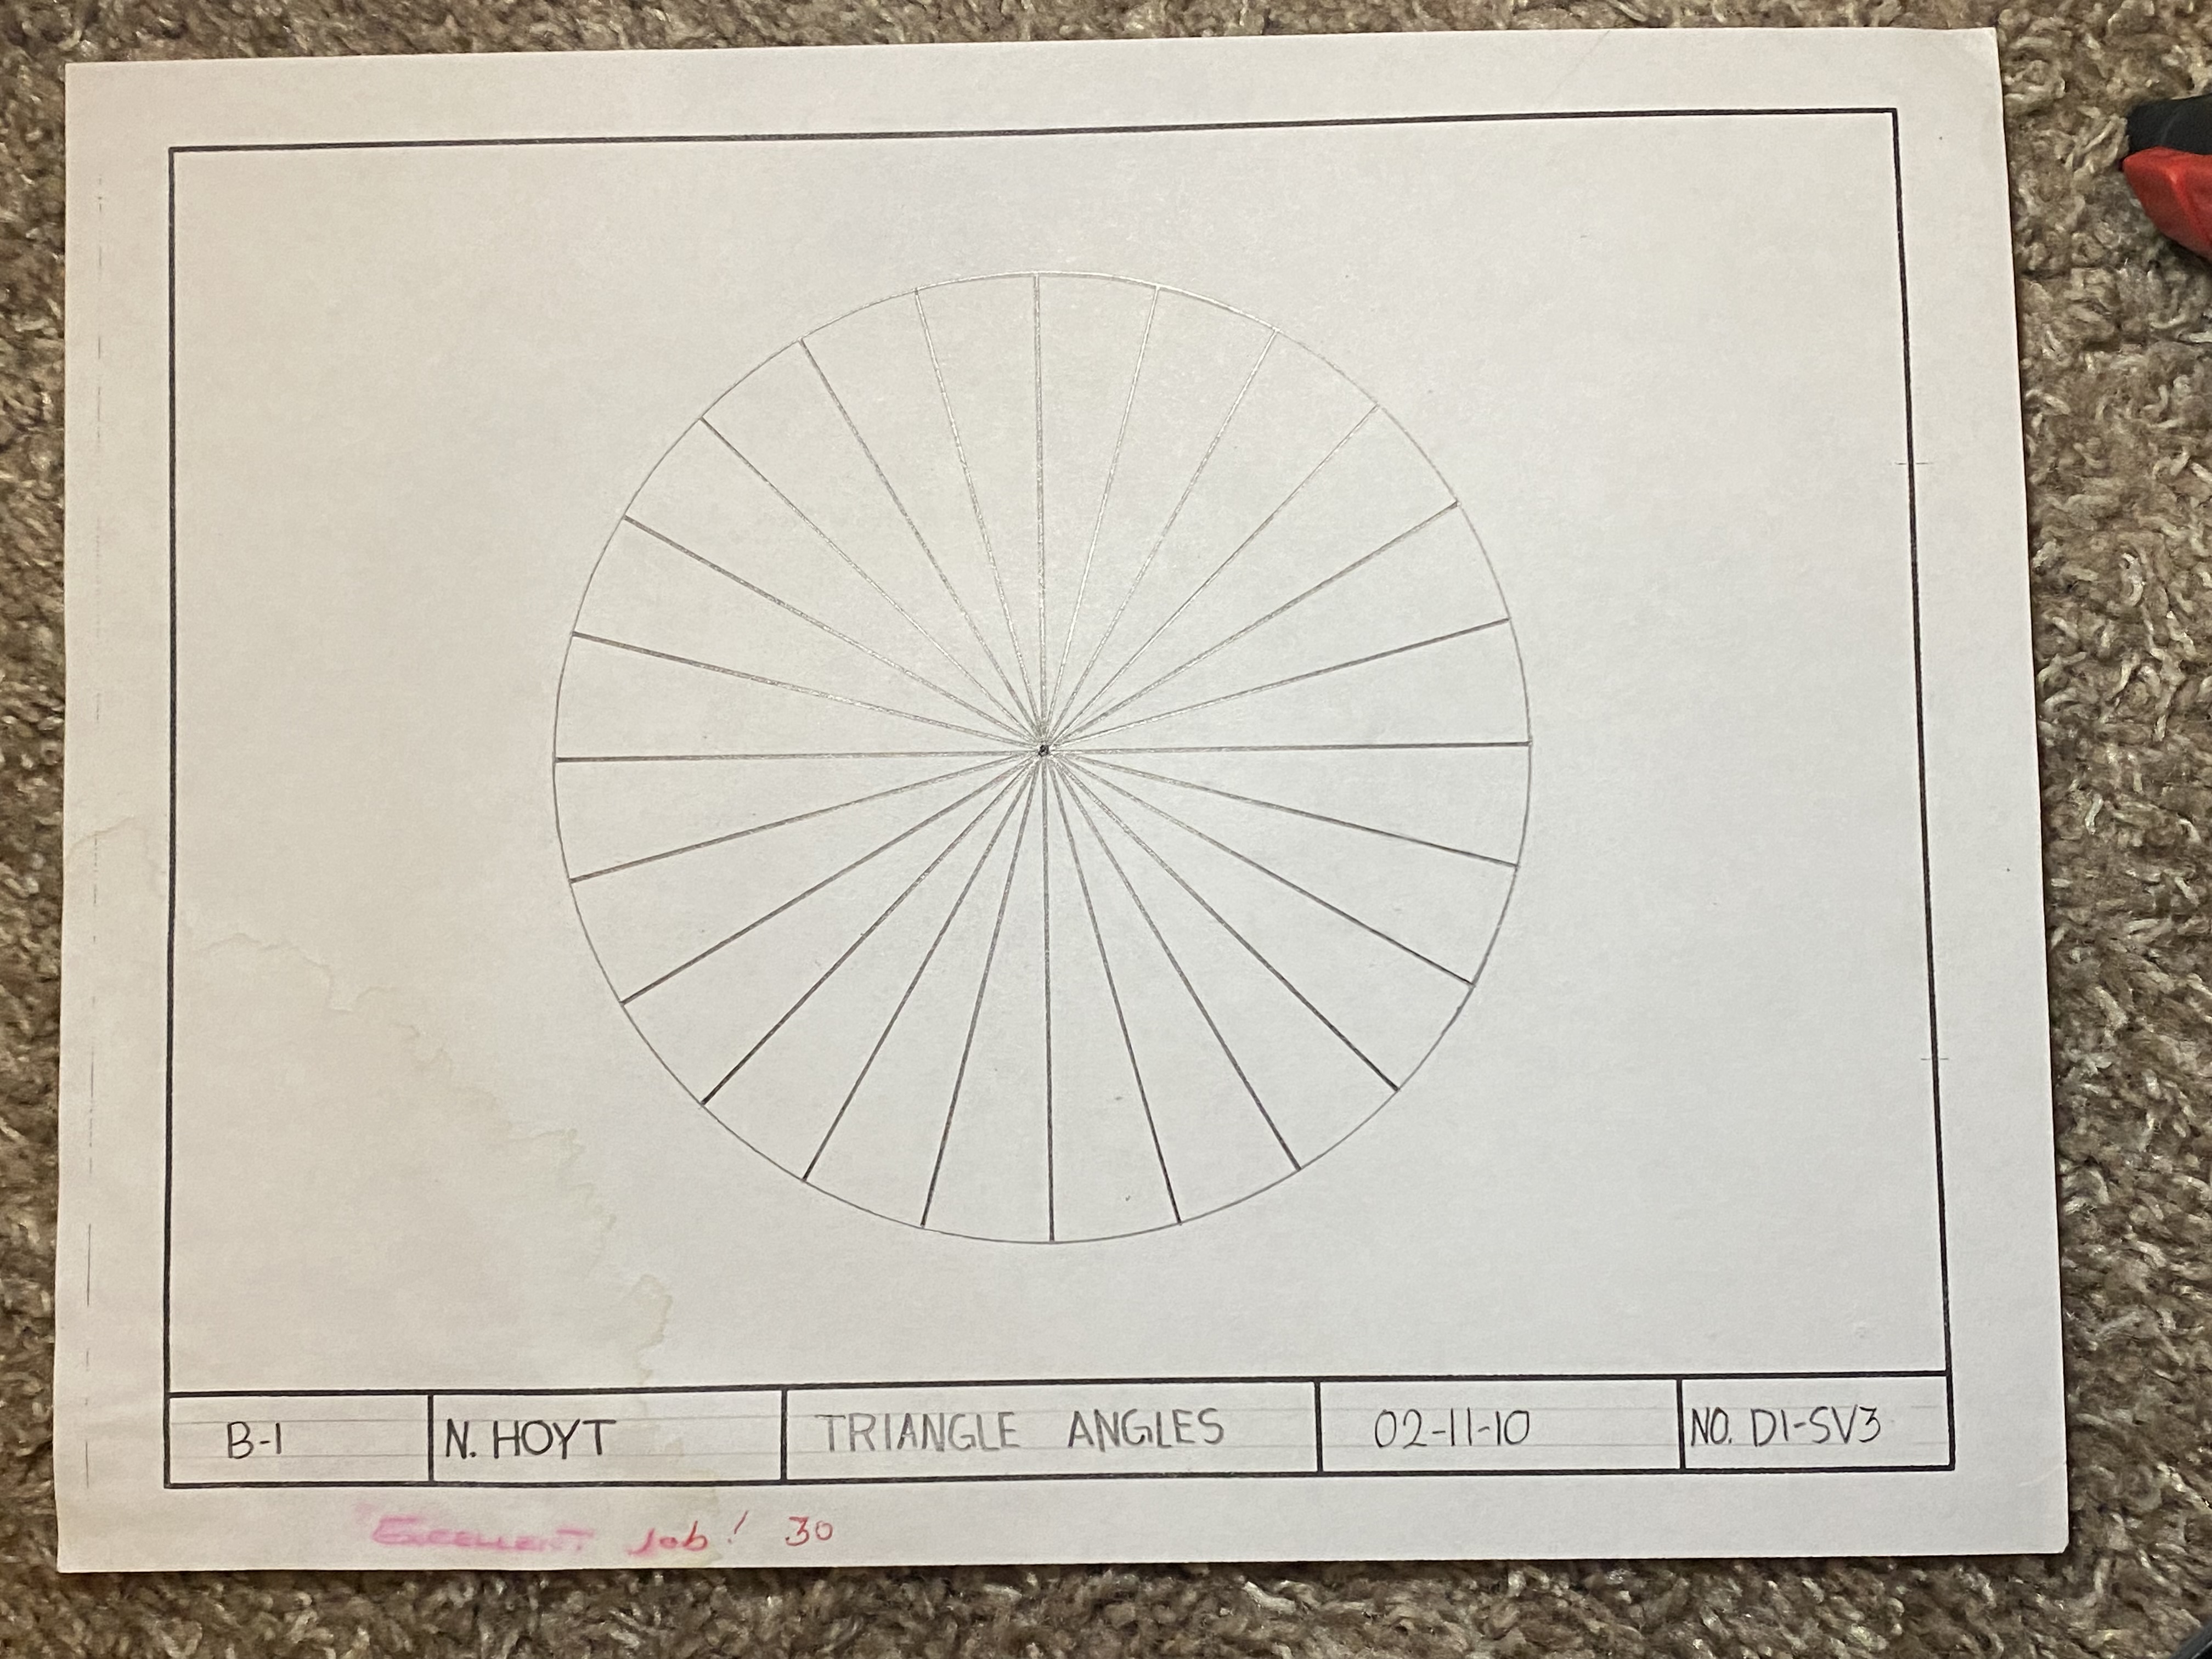 B-1 N. HOYT TRIANGLE ANGLES 02-11-10 NO. D1-SV3
EXCELLENT Job! 30